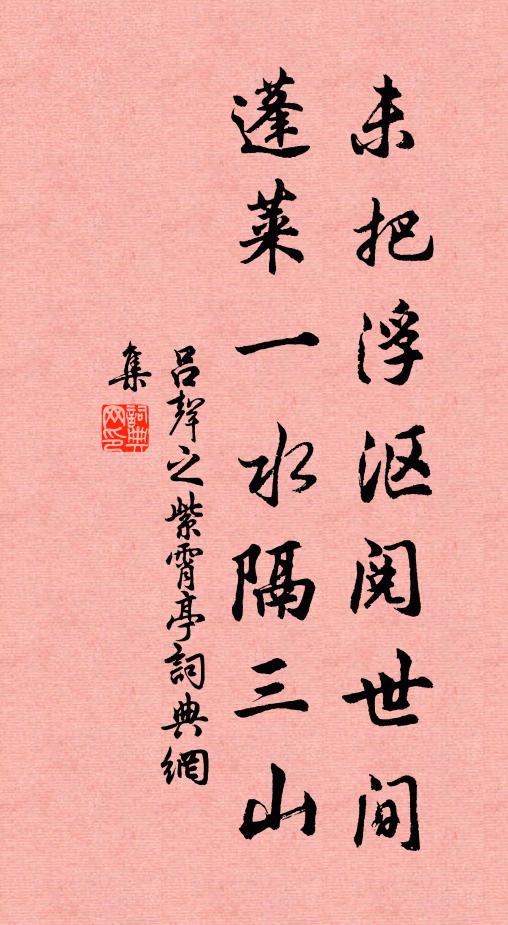 未把浮沤阅世间
蓬莱一水隔三山
吕声之紫霄亭词典网
集
词典网印